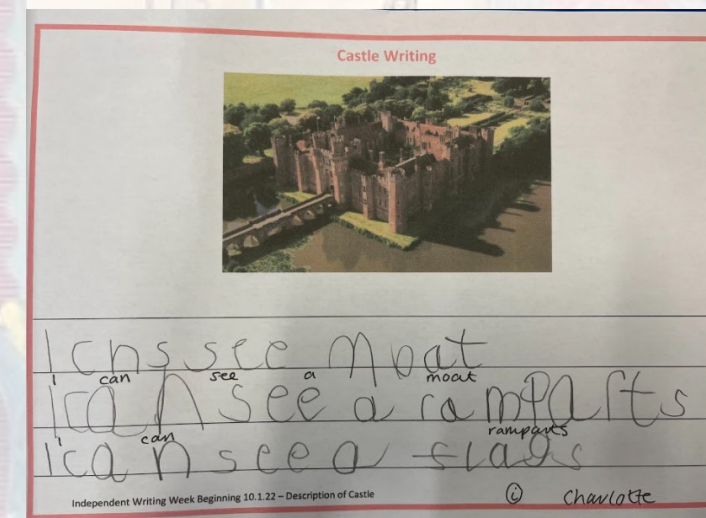 Castle Writing
I cns see Moat
i can see a moat
I can see a ramparts
i can ramparts
I can see a flags
Independent Writing Week Beginning 10.1.22 – Description of Castle
i Charlotte